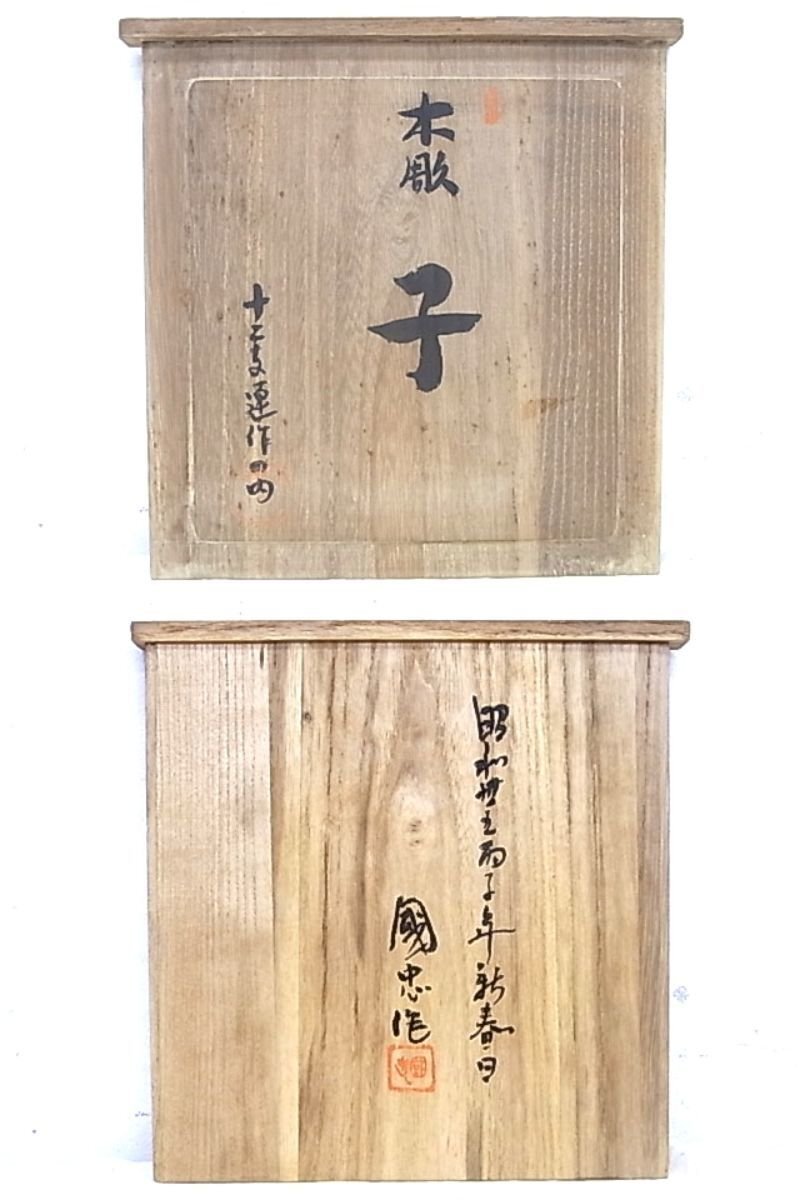 木彫
子
十二支連作の内
昭和丗五丙子年新春日
國忠作